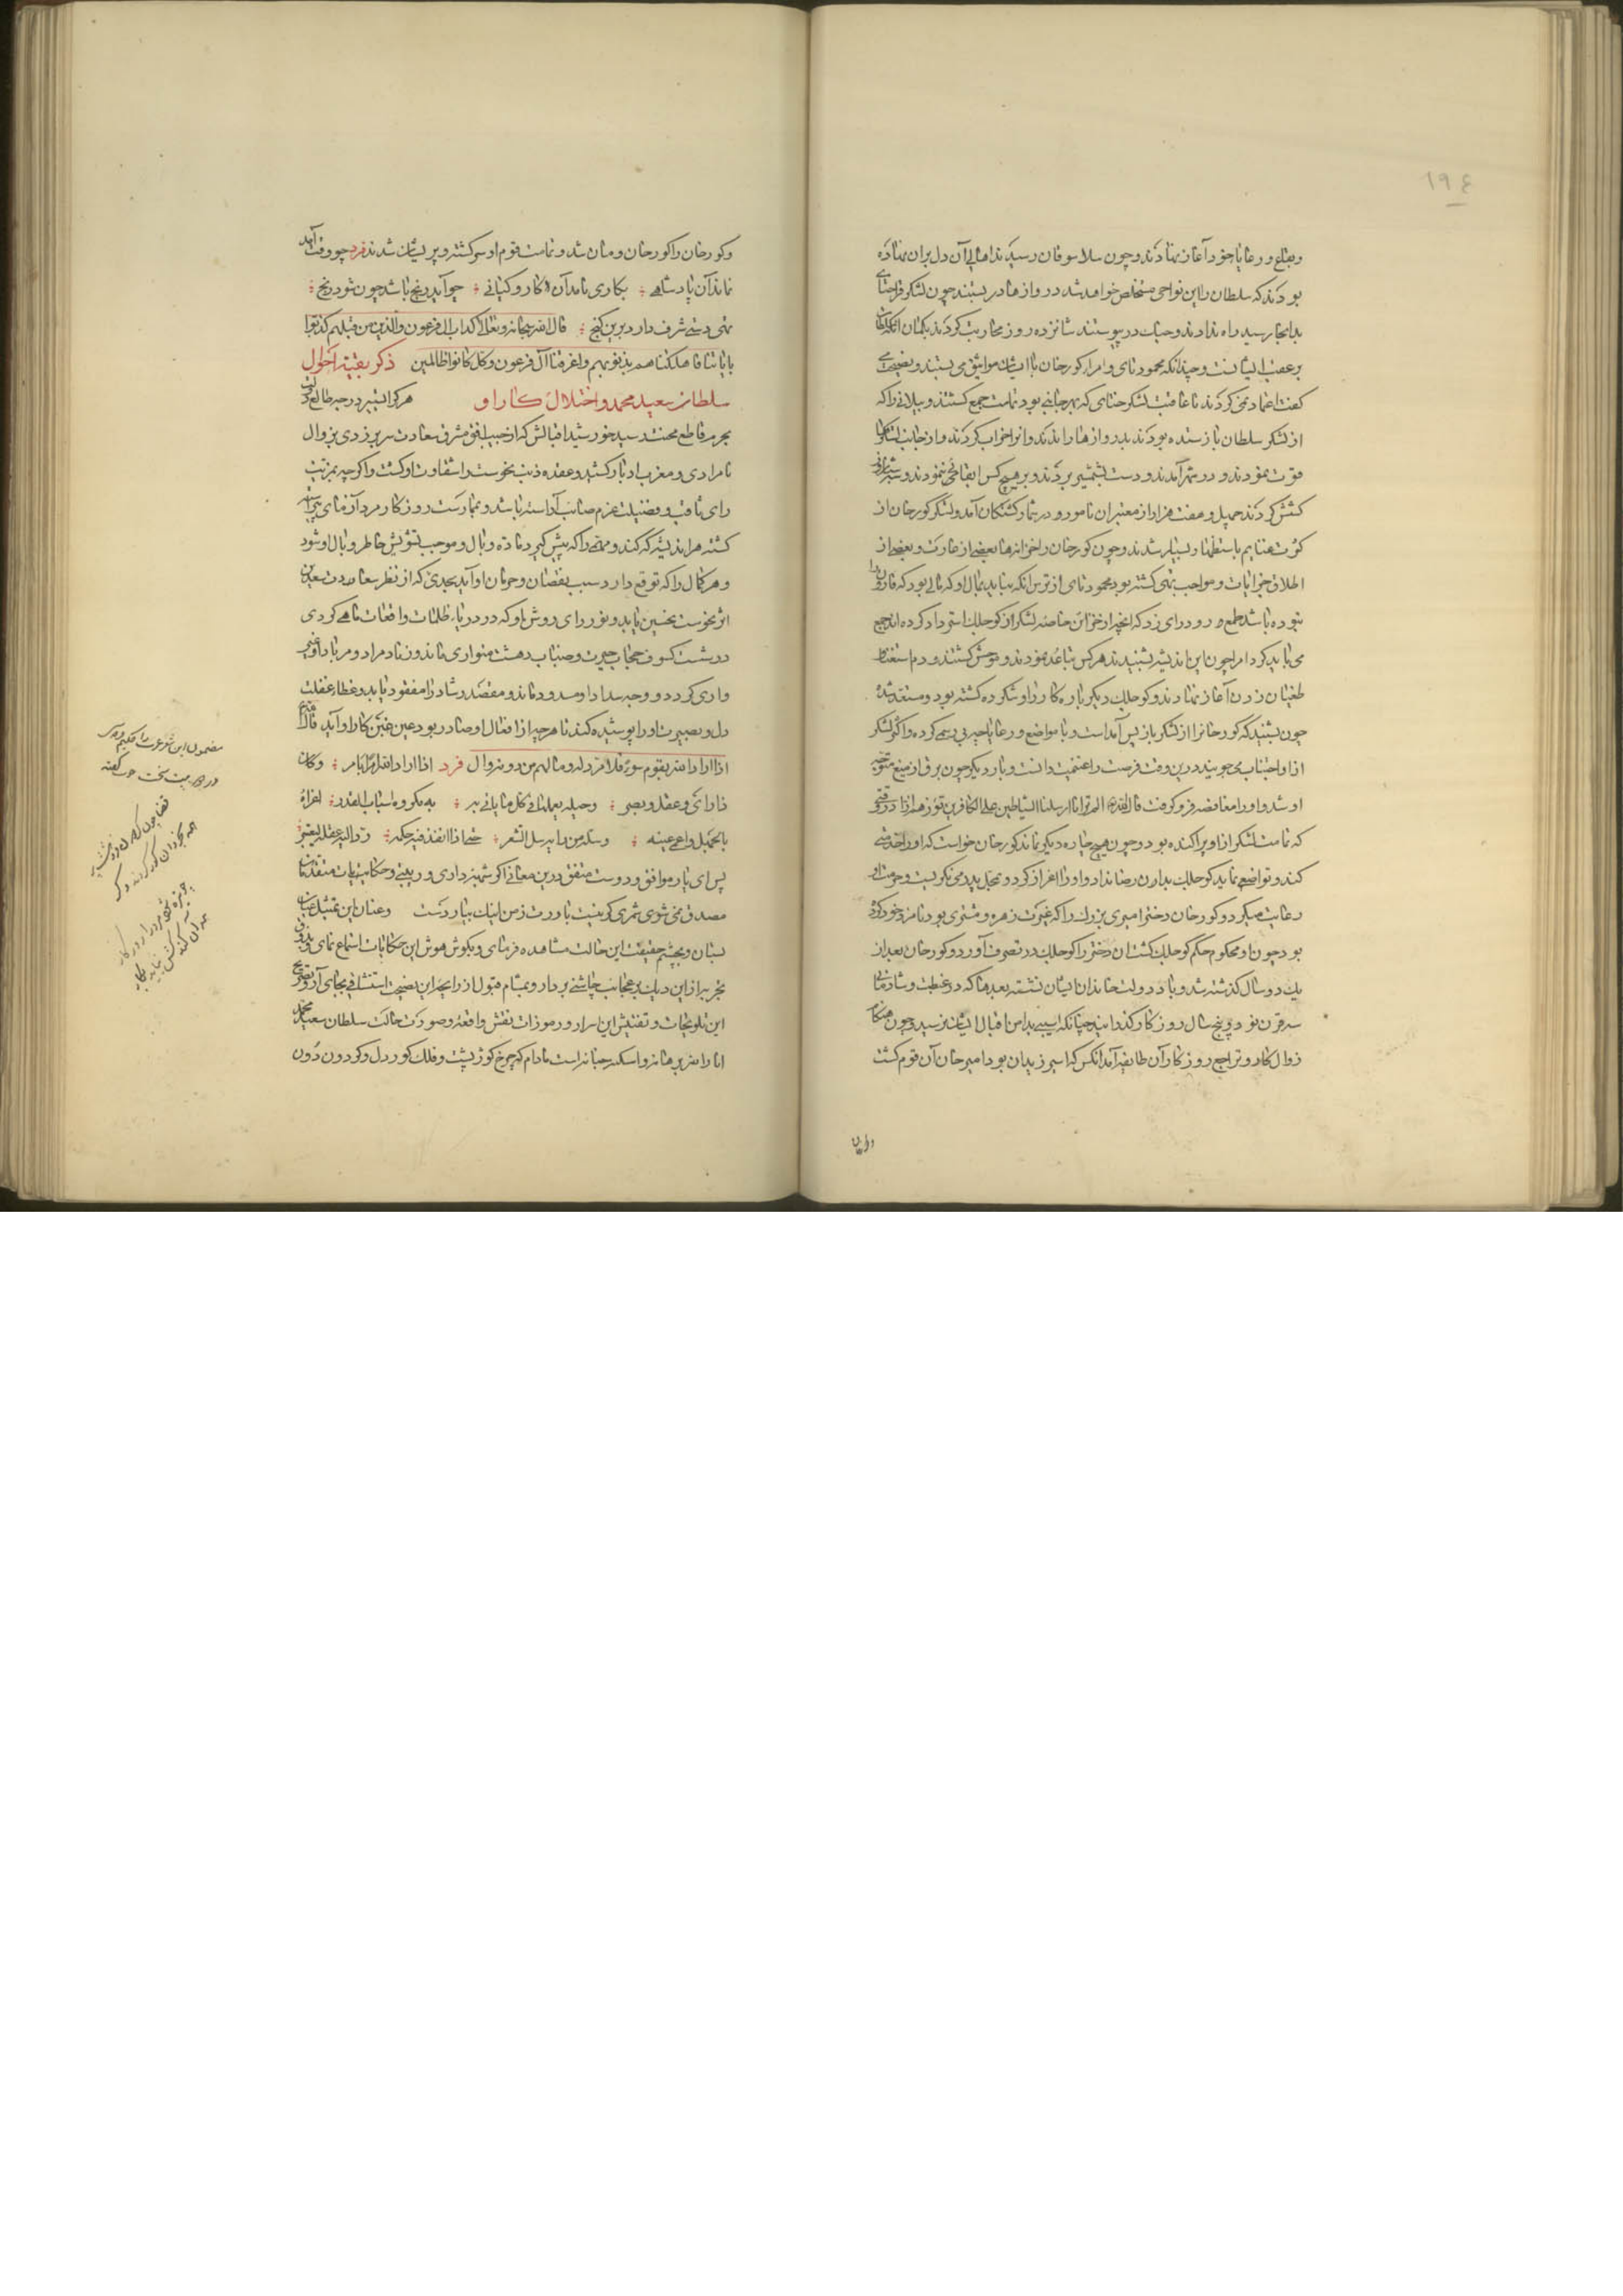 ١٩٤
وضلع و رعایا خود آغاز نهادند و چون بلاسوقان رسیدند اهالی آن دل بران نهاده
بودند که سلطان را این نواحی مستخلص خواهد شد دروازها در بستند چون لشکر قراختای
بدانجا رسید راه ندادند و جنک در پیوستند شانزده روز محاربت کردند بکمان آنکه سلطان
بر عقب ایشانست و چندانکه محمود تای و امراء کورخان با ایشان مواثیق می بستند و نصیحت
گفت اعتماد نمی کردند تا عاقبت لشکر ختای که بهر جانبی بود تمامت جمع کشتند و پیلانی را که
از لشکر سلطان باز ستده بودند بدروازها راندند و انرا خراب کردند و از جانب لشکرها
قوت نمودند و در شهر آمدند و دست بشمشیر بردند و بر هیچ کس ابقا نمی نمودند و سه شبانروز
کشش کردند چهل و هفت هزار از معتبران نامور در شمار کشتکان آمد و لشکر کورخان از
کثرت غنایم با استظهار بسیار شدند و چون کورخان را خزانها بعضی از غارت و بعضی از
اطلاق جرایات و مواجب تهی کشته بود محمود تای از ترس آنکه نباید بمال او که مالی بود که قارون را
نبوده باشد طمع رود رای زد که آنچه از خزاین خاصه لشکر از کوجلک استرداد کرده اند جمع
می باید کرد امرا چون این اندیشه بشنیدند هر کس تباعد نمودند و متوحش کشتند و دم استغنا
طغیان زدن آغاز نهادند و کوجلک دیکر باره کار را ساخته کرده کشته بود و مستعد شده
چون بشنید که کورخان را از لشکر باز پس آمداست و با مواضع و رعایا چیره بی رسمی کرده و اکثر لشکر
از او اجتناب می جویند درین وقت فرصت را غنیمت دانست و بار دیکر چون برق از میغ متوجه
او شد و او را مغافصه فرو گرفت قال الله الم تر انا ارسلنا الشیاطین علی الکافرین تؤزهم ازا در وقتی
که تمامت لشکر از او پراکنده بود و چون هیچ چاره دیکر نماند کورخان خواست که او را خدمتی
کند و تواضع نماید کوجلک بدان رضا نداد و او را اعزاز کرد و بمحل پدر می نکریست و حرمت او
رعایت میکرد و کورخان دختر امیری بزرک را که غیرت زهره و مشتری بود نامزد خود کرده
بود چون او محکوم حکم کوجلک کشت ان دختر را کوجلک در تصرف آورد و کورخان بعد از
یک دو سال گذشته شد و باد دولت خاندان ایشان نشسته بعد ما که در غبطت و شادمانی
سه قرن نود و پنج سال روزکار گذرانید چنانکه آسیبی بدامن اقبال ایشان نرسید و چون هنکام
زوال کار و تراجع روزکار آن طایفه آمد آنکس که اسیر زندان بود امیر خان آن قوم کشت
و کورخان را کور خان و مان شد و تمامت قوم او سرکشته و پریشان شدند فرد چو وقت آمد
نماند آن پادشاهی ؛ بکاری نامد آن کار و کیایی ؛ چو آید رنج باشد چون شود رنج ؛
تهی دستی شرف دارد برین کنج ؛ قال الله سبحانه و تعالی کداب ال فرعون والذین من قبلهم کذبوا
بایاتنا فاهلکناهم بذنوبهم و اغرقنا ال فرعون و کل کانوا ظالمین ذکر بقیه احوال
سلطان سعید محمد و اختلال کار او هر کرا تیر در جبر طالع او
بجرم قاطع محنت رسید خورشید اقبالش که از جیب افق مشرق سعادت سر برزدی بزوال
نامرادی و مغرب ادبار کشید و عقده ذنب نحوست راس سعادت او کشت و اکر چه بمرتبت
رای ثاقب و فضیلت عزم صائب آراسته باشد و بممارست روزکار مرد آزمای پیراسته
کشته هر اندیشه که کند و مهمی را که پیش گیرد ماده وبال و موجب تشویش خاطر و بال او شود
و هر کمال را که توقع دارد سبب نقصان و حرمان او آید بحدی که از نظر سعادت سعدین
اثر نحوست نحسین یابد و نور رای روشن او که در دریای ظلمات واقعات ماهی کردی
در شست کسوف حجاب حیرت و ضباب دهشت متواری ماند و زناد مراد و مرباد او غیر
واری کردد و وجه سداد او مسدود ماند و مقصد رشاد را مفقود یابد و غطاء غفلت
دل و بصیرت او را پوشیده کند تا هر چه از افعال او صادر بود عین غبن کار او آید قال الله
اذا اراد الله بقوم سوءا فلا مرد له و ما لهم من دونه من وال فرد اذا اراد الله امرا بامر ؛ و کان
ذا رای و عقل و بصر ؛ و حیلة یعملها فی کل ما یاتی به ؛ مکروه اسباب القدر ؛ اغراه
بالجهل و اعمی عینه ؛ و سله من رایه سل الشعر ؛ حتی اذا انفذ فیه حکمه ؛ رد الیه عقله لیعتبر
پس ای یار موافق و دوست متفق درین معانی اکر شبهتی داری و ریبتی و حکایت
مصدق نمی شوی شمری کر نیست باورت ز من اینک بیار دست و عنان این
بستان و بچشم حقیقت این حالت مشاهده فرمای و بکوش هوش این حکایات استماع نمای و بذوق
تجربه از این دیک پر عجایب چاشنی بردار و بمشام قبول از روایح این نصیحت استنشاقی بجای آر و تصریح
این تلویحات و تفتیش این اسرار و رموزات نقش واقعه و صورت حالت سلطان سعید محمد
انار الله برهانه و اسکنه جنانه است مادام که چرخ کوژ پشت و فلک کور دل و گردون دون
مضمون این شعر عرب را حکیم
در دو بیت سخت خوب کفته
قضا چون ز کردون